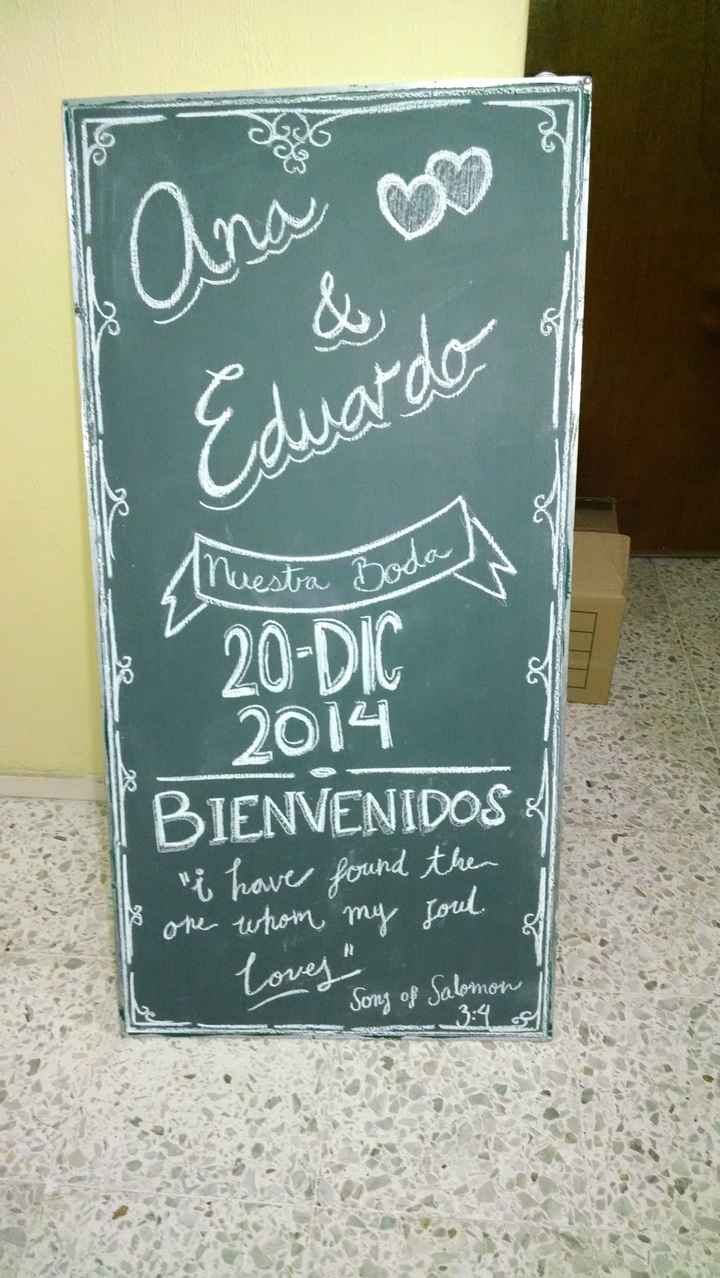 Ana
&
Eduardo
Nuestra Boda
20-DIC
2014
BIENVENIDOS
"i have found the
one whom my soul
loves"
Song of Salomon
3:4